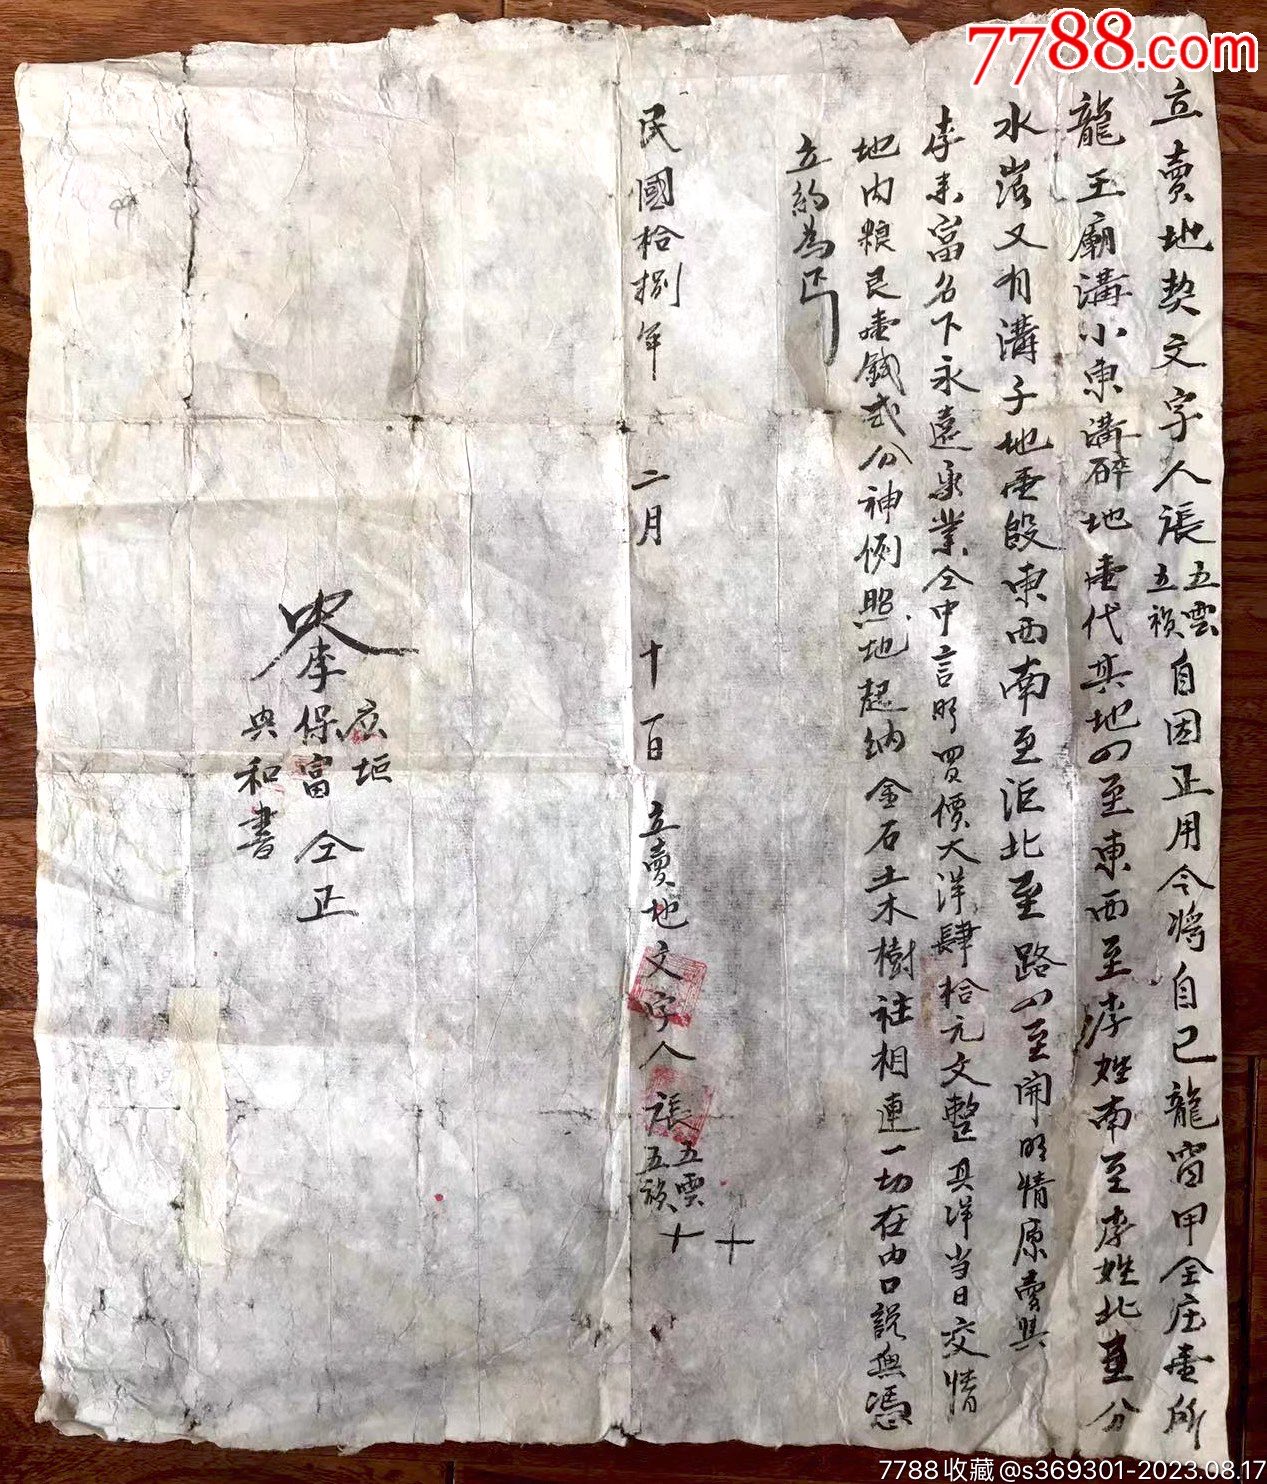 7788.com
立賣地契文字人張五雲五禎自因正用今將自己龍霄甲全庄壹所
龍王廟溝小東溝碎地壹代其地四至東西至李姓南至李姓北至分
水嶺又有溝子地壹段東西南至洰北至路四至開明情原賣與
李來富名下永遠承業仝中言明買價大洋肆拾元文整其洋当日交情
地内粮艮壹錢弍分神例照地起納金石土木樹社相連一切在内口說無憑
立約為証
民國拾捌年二月十百立賣地文字人張五雲五禎十十
中人李広垣保富仝正
典和書
7788收藏@s369301-2023.08.17